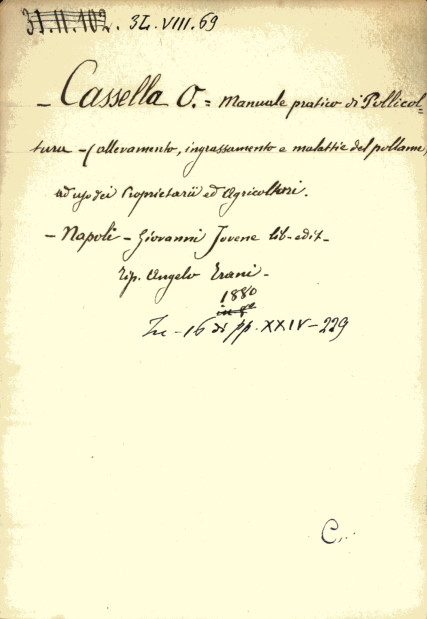 31.II.102. 3L.VIII.69
- Cassella O. = Manuale pratico di Pollicol=
tura - (allevamento, ingrassamento e malattie del pollame,
ad uso dei Proprietarii ed Agricoltori.
- Napoli - Giovanni Jovene lib-edit-
Tip. Angelo Trani -
1880
in 8º
In - 16 di pp. XXIV - 229
C.